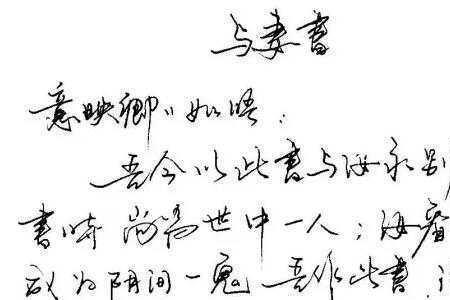 与妻書
意映卿〃如晤：
吾今以此書与汝永别
書時尚為世中一人；汝看
成为阴间一鬼 吾作此書，